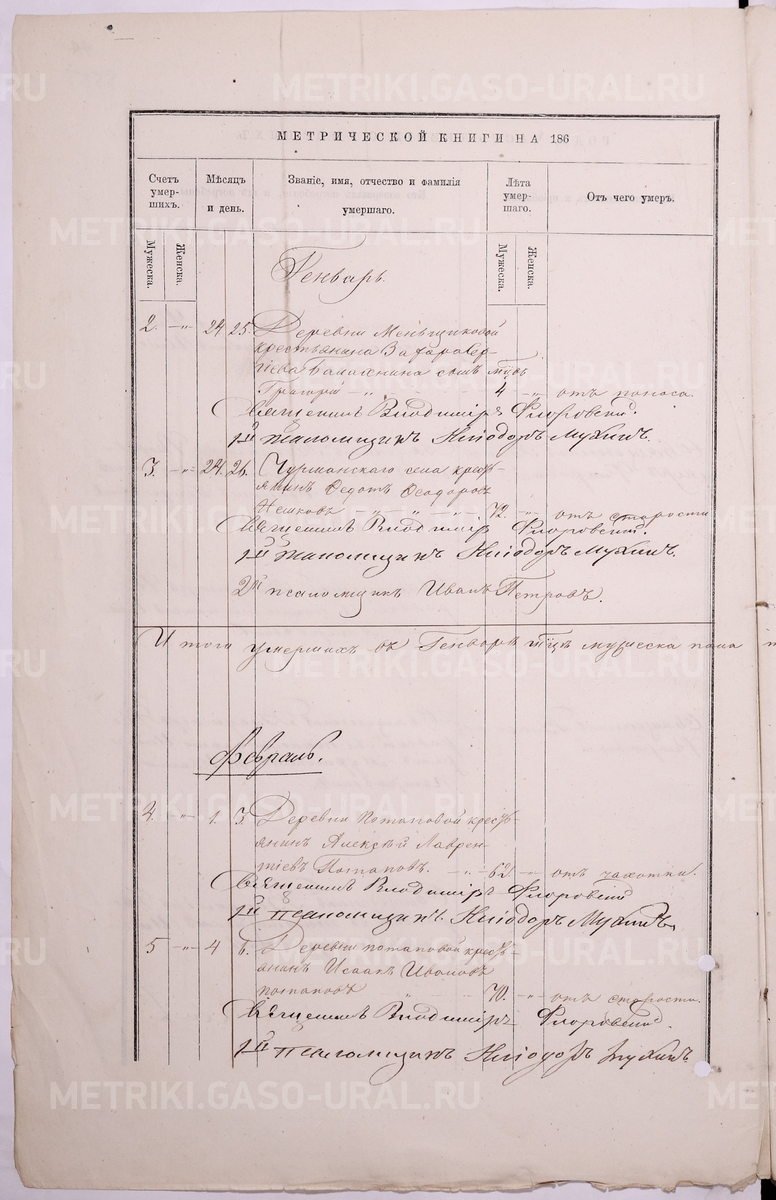 МЕТРИЧЕСКОЙ КНИГИ НА 186
Счетъ умер-шихъ.
Мѣсяцъ и день.
Званіе, имя, отчество и фамилія умершаго.
Лѣта умер-шаго.
Отъ чего умеръ.
Мужеска.
Женска.
Мужеска.
Женска.
Генварь.
2. -„- 24. 25. Деревни Меньщиковой
крестьянина
сынъ
Григорій -„- 4 -„- отъ поноса.
Священникъ Владиміръ Флоровскій.
1й псаломщикъ Иліодоръ Мухинъ.
3. -„- 24. 26. Чурманскаго села кресть-
янинъ Ѳедотъ Ѳеодоровъ
72 -„- отъ старости
Священникъ Владиміръ Флоровскій.
1й псаломщикъ Иліодоръ Мухинъ.
2й псаломщикъ Иванъ Петровъ.
Итого умершихъ въ Генварѣ мужеска пола
Февраль.
4. -„- 1. 3. Деревни Потаповой кресть-
янинъ Алексѣй Лаврен-
тіевъ Потаповъ. -„- 62 -„- отъ чахотки.
Священникъ Владиміръ Флоровскій
1й псаломщикъ Иліодоръ Мухинъ.
5 -„- 4 6. Деревни потаповой кресть-
янинъ Исаакъ Ивановъ
потаповъ 70. -„- отъ старости.
Священникъ Владиміръ Флоровскій.
1й псаломщикъ Иліодоръ Мухинъ
METRIKI.GASO-URAL.RU